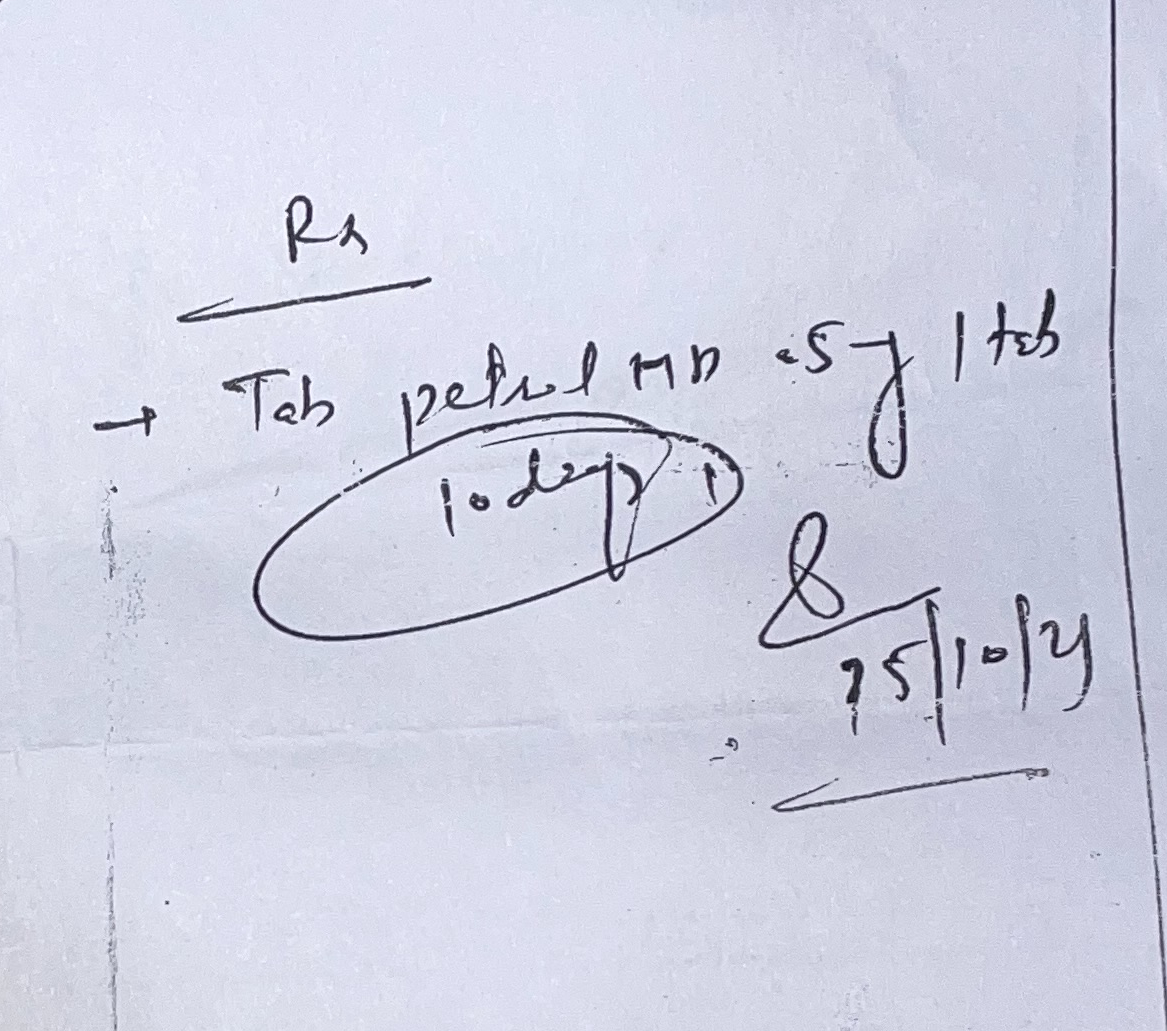 Rx
→ Tab petril MD .5 1 tab
10 days
25/10/21